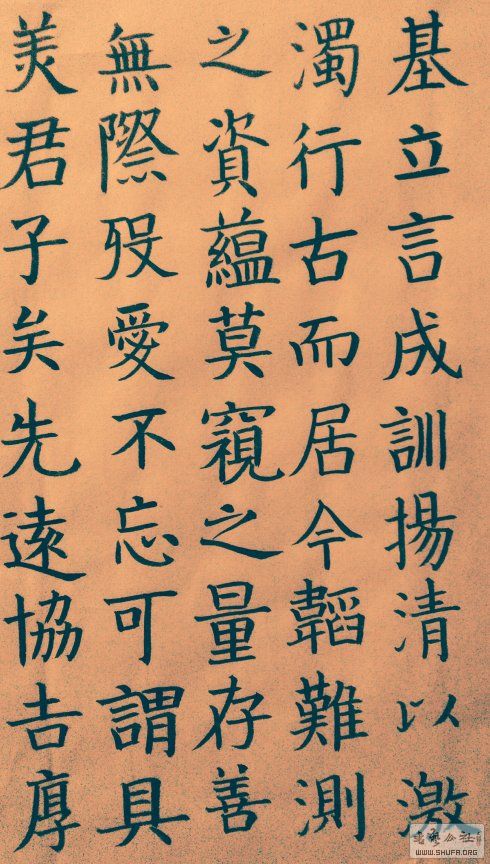 基立言成訓揚清以激
濁行古而居今韜難測
之資蘊莫窺之量存善
無際歿愛不忘可謂具
美君子矣先遠協吉厚
WWW.SHUFA.ORG